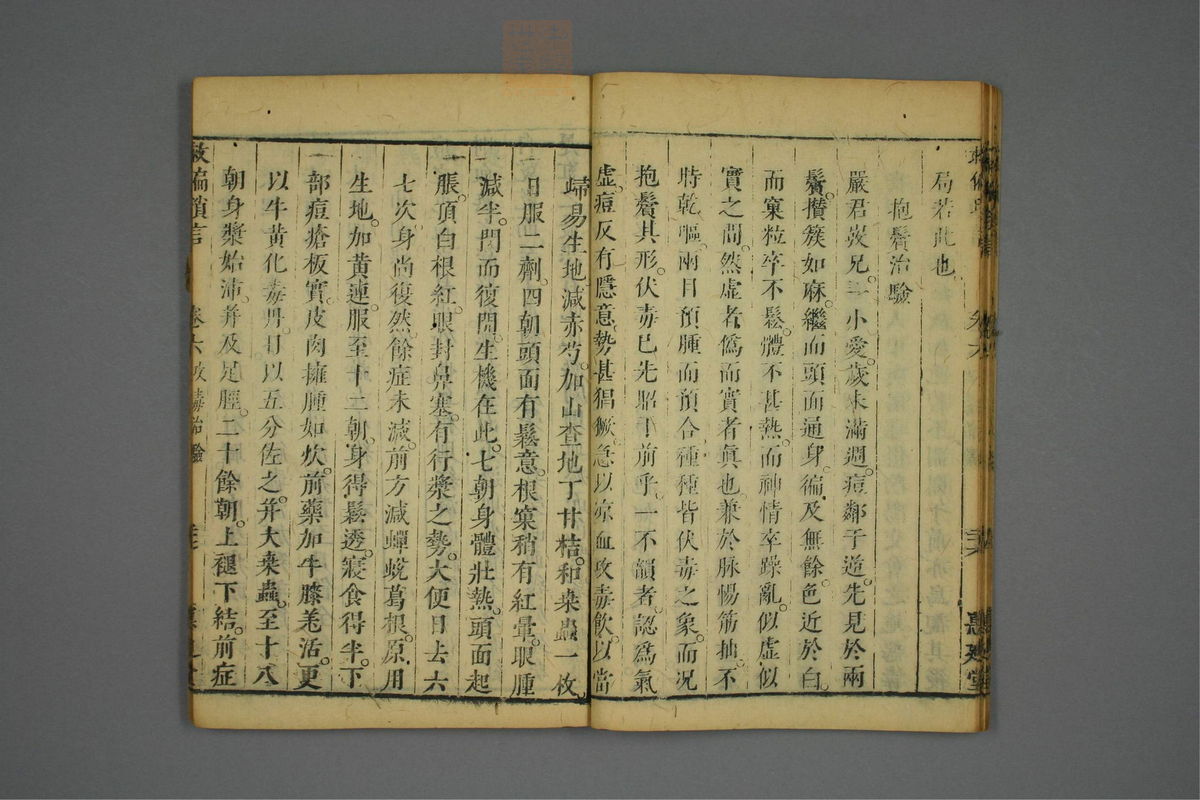 局若此也
抱鬢治驗
嚴君茇兄。三小愛。歲未滿週。痘鄰于逆。先見於兩
鬢。攢簇如麻。繼而頭面通身。徧及無餘。色近於白。
而窠粒卒不鬆。體不甚熱。而神情卒躁亂。似虛似
實之間。然虛者僞而實者眞也。兼於脉惕筋抽。不
時乾嘔。兩目預腫而預合。種種皆伏毒之象。而况
抱鬢其形。伏毒已先昭于前乎。一不韻者。認爲氣
虛。痘反有隱意。勢甚猖獗。急以凉血攻毒飲。以當
歸易生地。減赤芍。加山查地丁甘桔。和桒蟲一枚。
一日服二劑。四朝頭面有鬆意。根窠稍有紅暈。眼腫
減半。閉而復開。生機在此。七朝身體壯熱。頭面起
脹。頂白根紅。眼封鼻塞。有行漿之勢。大便日去六
七次。身尚復然。餘症未減。前方減蟬蛻葛根。原用
生地。加黃連。服至十二朝。身得鬆透。寢食得半。下
部痘瘡板實。皮肉擁腫如炊。前藥加牛膝羌活。更
以牛黃化毒丹。日以五分佐之。并大桒蟲。至十八
朝身漿始沛。并及足脛。二十餘朝。上褪下結。前症
救偏瑣言
卷六
攻毒治驗